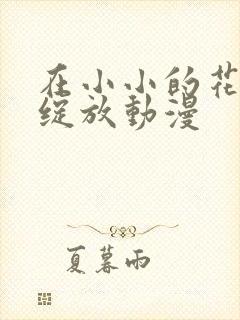 在小小的花
綻放動漫
夏暮雨